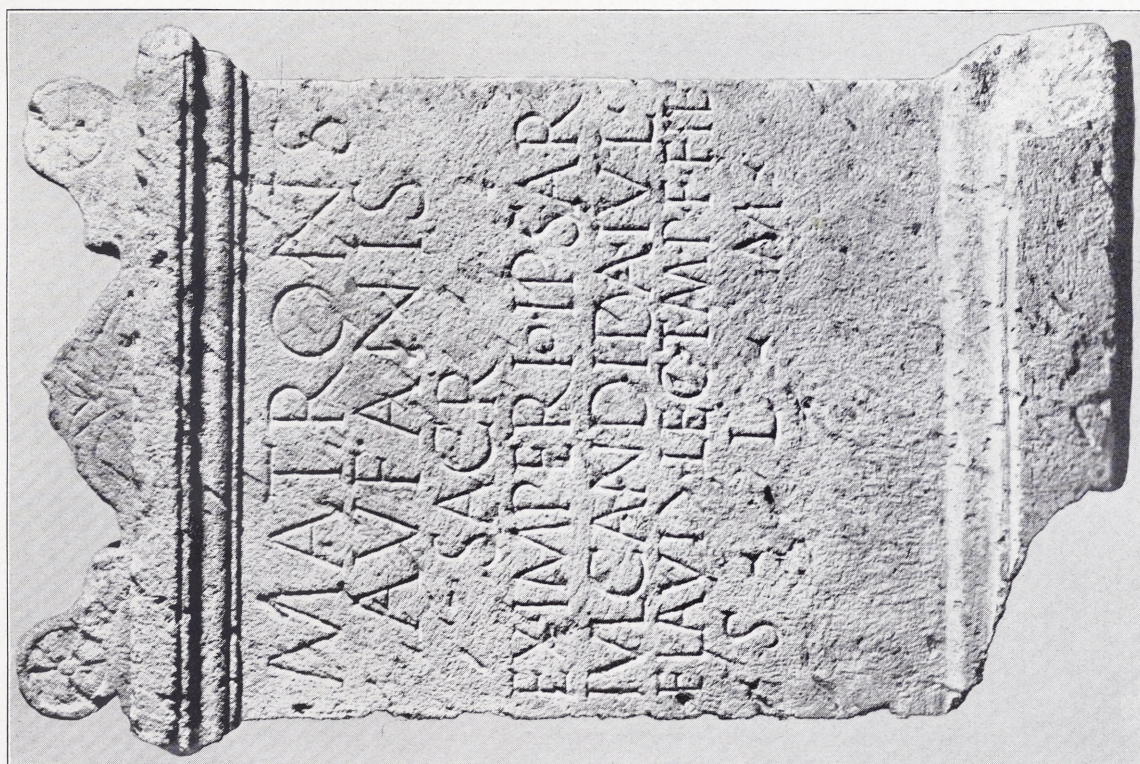 MATRONIS
AVFANIS
SACR
EX IMPER IPSAR
M CANDIDA IVL
FLAVI LEG I M P F
S L M